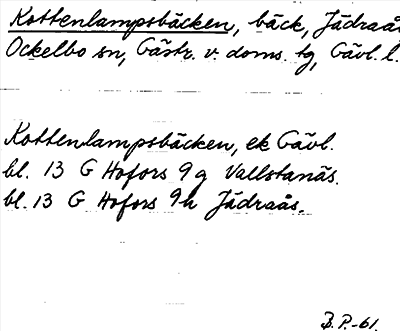 Kottenlampsbäcken, bäck, Jädraås
Ockelbo sn, Gästr. v. doms. tg, Gävl. l.
Kottenlampsbäcken, ek Gävl.
bl. 13 G Hofors 9 g Vallstanäs.
bl. 13 G Hofors 9 h Jädraås.
B. P. -61.